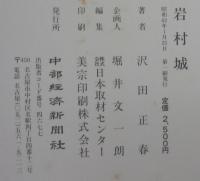 岩村城
昭和62年1月25日 第一刷発行
定価 2,500円
著者 沢田正春
企画人 堀井文一朗
編集 日本取材センター
印刷 美宗印刷株式会社
発行所 中部経済新聞社
名古屋市中村区名駅